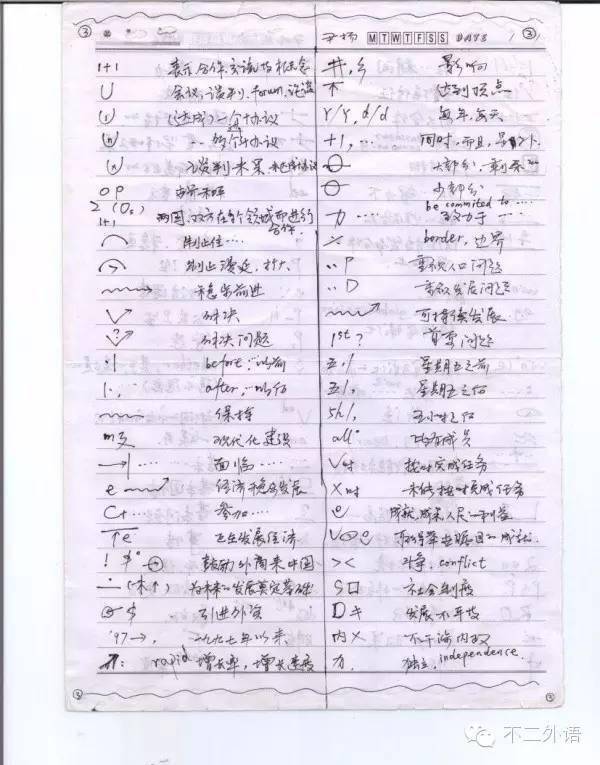 ③ 开场 MTWTFSS DATE / ③
1+1 表示合作,交流的概念
U 会议,谈判,forum,论坛
(达成)一个协议
… 多个协议
谈判未果
O P 世界和平
2 (Os) 两国,双方在各个领域都进行合作.
1+1
⌒ 制止住….
制止蔓延,扩大.
稳步前进
解决
? 解决问题
·| before, 以前
|·, after, 以后
保持
m 现代化建设
→| …. 面临 ….
e 经济稳步发展
C+…. 参加….
e 正在发展经济
! $ 鼓励外商来中国
(未↑) 为未来的发展奠定基础
$ 引进外资
'97→, 一九九七年以来
: rapid 增长率,增长速度
井,乡 影响
不 达到顶点
Y/Y, d/d 每年,每天
+1, … 同时,而且,
大部分,剩余
少部分
力… be commited to …. 致力于 ….
border, 边界
··P 重视人口问题
··D 重视发展问题
可持续发展
1st ? 首要问题
五·| 星期五之前
五|· 星期五之后
5h|, 五小时之后
all° 所有成员
V时 按时完成任务
X时 未能按时完成任务
e 成就,成果,人民,利益
V e 取得举世瞩目的成就.
>< 斗争,conflict
S口 社会制度
D 发展不平衡
内X 不干涉内政
力. 独立,independence.
③ ③
不二外语